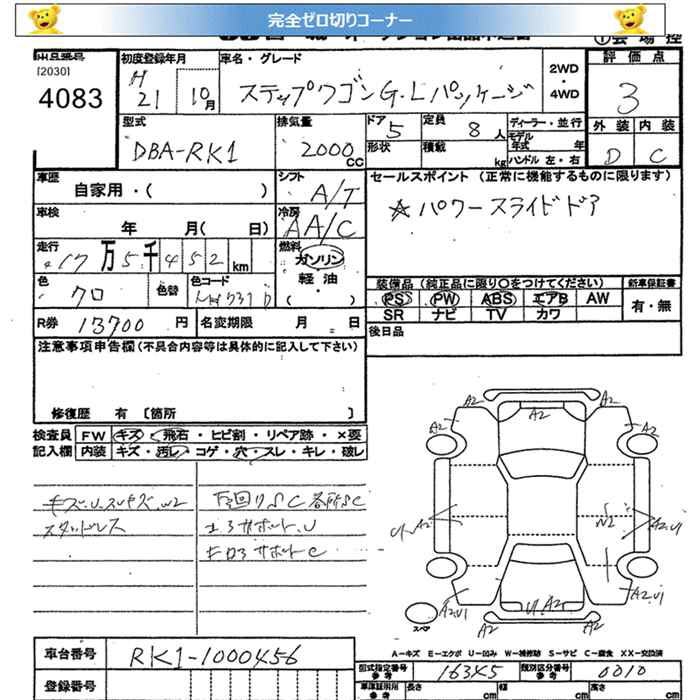 完全ゼロ切りコーナー
[2030]
4083
初度登録年月
H
21 10月
車名・グレード
ステップワゴン G・Lパッケージ
2WD
・
4WD
評価点
3
外装 内装
D C
型式
DBA-RK1
排気量
2000 CC
ドア 5
形状
定員 8人
積載 kg
ディーラー・並行
モデル年式 年
ハンドル 左・右
車歴
自家用・( )
シフト
A/T
セールスポイント (正常に機能するものに限ります)
☆パワースライドドア
車検
年 月( 日)
冷房
AA/C
走行
17万5千452km
燃料
ガソリン
軽油
・( )
色
クロ
色替
色コード
R券 13700円
名変期限 月 日
装備品 (純正品に限り○をつけてください)
PS PW ABS エアB AW
SR ナビ TV カワ
新車保証書
有・無
後日品
注意事項申告欄 (不具合内容等は具体的に記入して下さい)
修復歴 有 〔箇所 〕
検査員記入欄
FW キズ・飛石・ヒビ割・リペア跡・×要
内装 キズ・汚レ・コゲ・穴・スレ・キレ・破レ
スタッドレス
下回りSC各所SC
A2 A2 A2
A2 A2 A2
A2 A2
A2 U1
A2
A2
スペア
A-キズ E-エクボ U-凹み W-補修跡 S-サビ C-腐食 XX-交換済
車台番号 RK1-1000456
登録番号
型式指定番号 参考 16345
類別区分番号 参考 0010
車庫証明用 参考 長さ cm 幅 cm 高さ cm